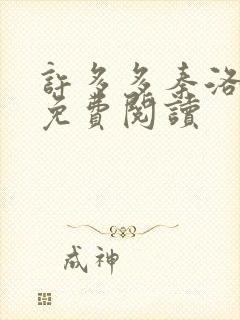 許多多秦洛
免費閱讀
成神